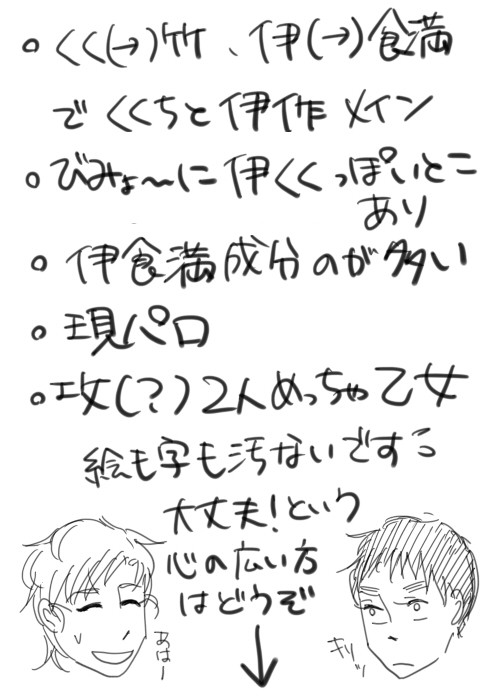 ○くく(→)竹、伊(→)食満
でくくちと伊作メイン
○びみょ〜に伊くくっぽいとこ
あり
○伊食満成分のが多い
○現パロ
○攻(?)2人めっちゃ乙女
絵も字も汚ないですう
大丈夫!という
心の広い方
はどうぞ
↓
あはー
キリッ